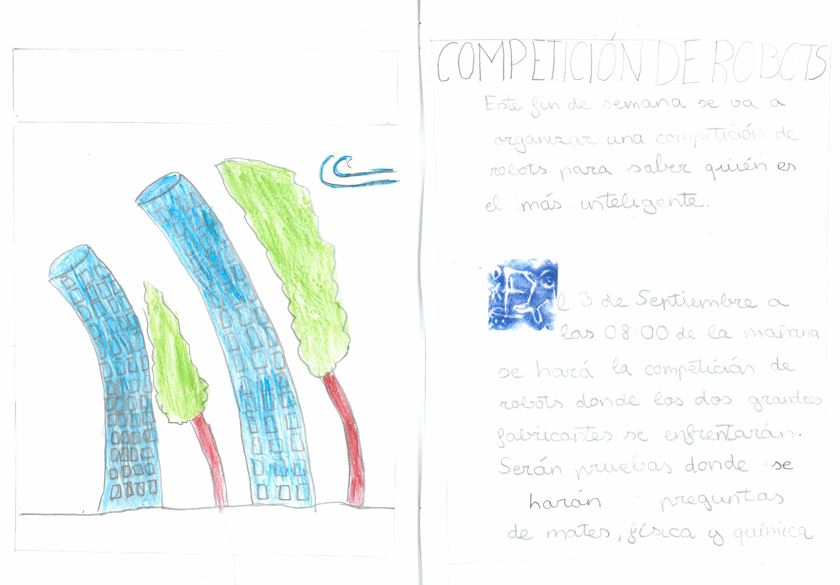 COMPETICIÓN DE ROBOTS
Este fin de semana se va a
organizar una competición de
robots para saber quién es
el más inteligente.
El 3 de Septiembre a
las 08:00 de la mañana
se hará la competición de
robots donde los dos grandes
fabricantes se enfrentarán.
Serán pruebas donde se
harán preguntas
de mates, física y química